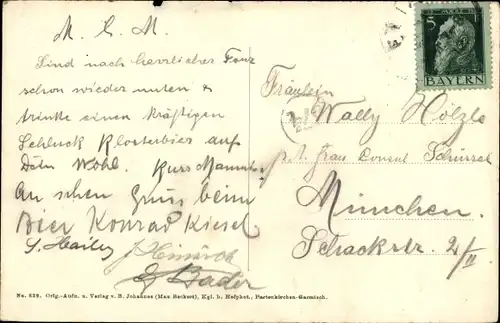 M. L. M.
Sind nach herrlicher Tour
schon wieder unten &
trinke einen kräftigen
Schluck Klosterbier auf
Dein Wohl. Kurs
An schen Gruss beim
Bier Konrad Kiesel
J. Heinrich
Bader
Fräulein
Wally Hölzle
Frau Consul
München.
Schackstr. 2/II
5
BAYERN
No. 829. Orig.-Aufn. u. Verlag v. B. Johannes (Max Beckert), Kgl. b. Hofphot., Partenkirchen-Garmisch.